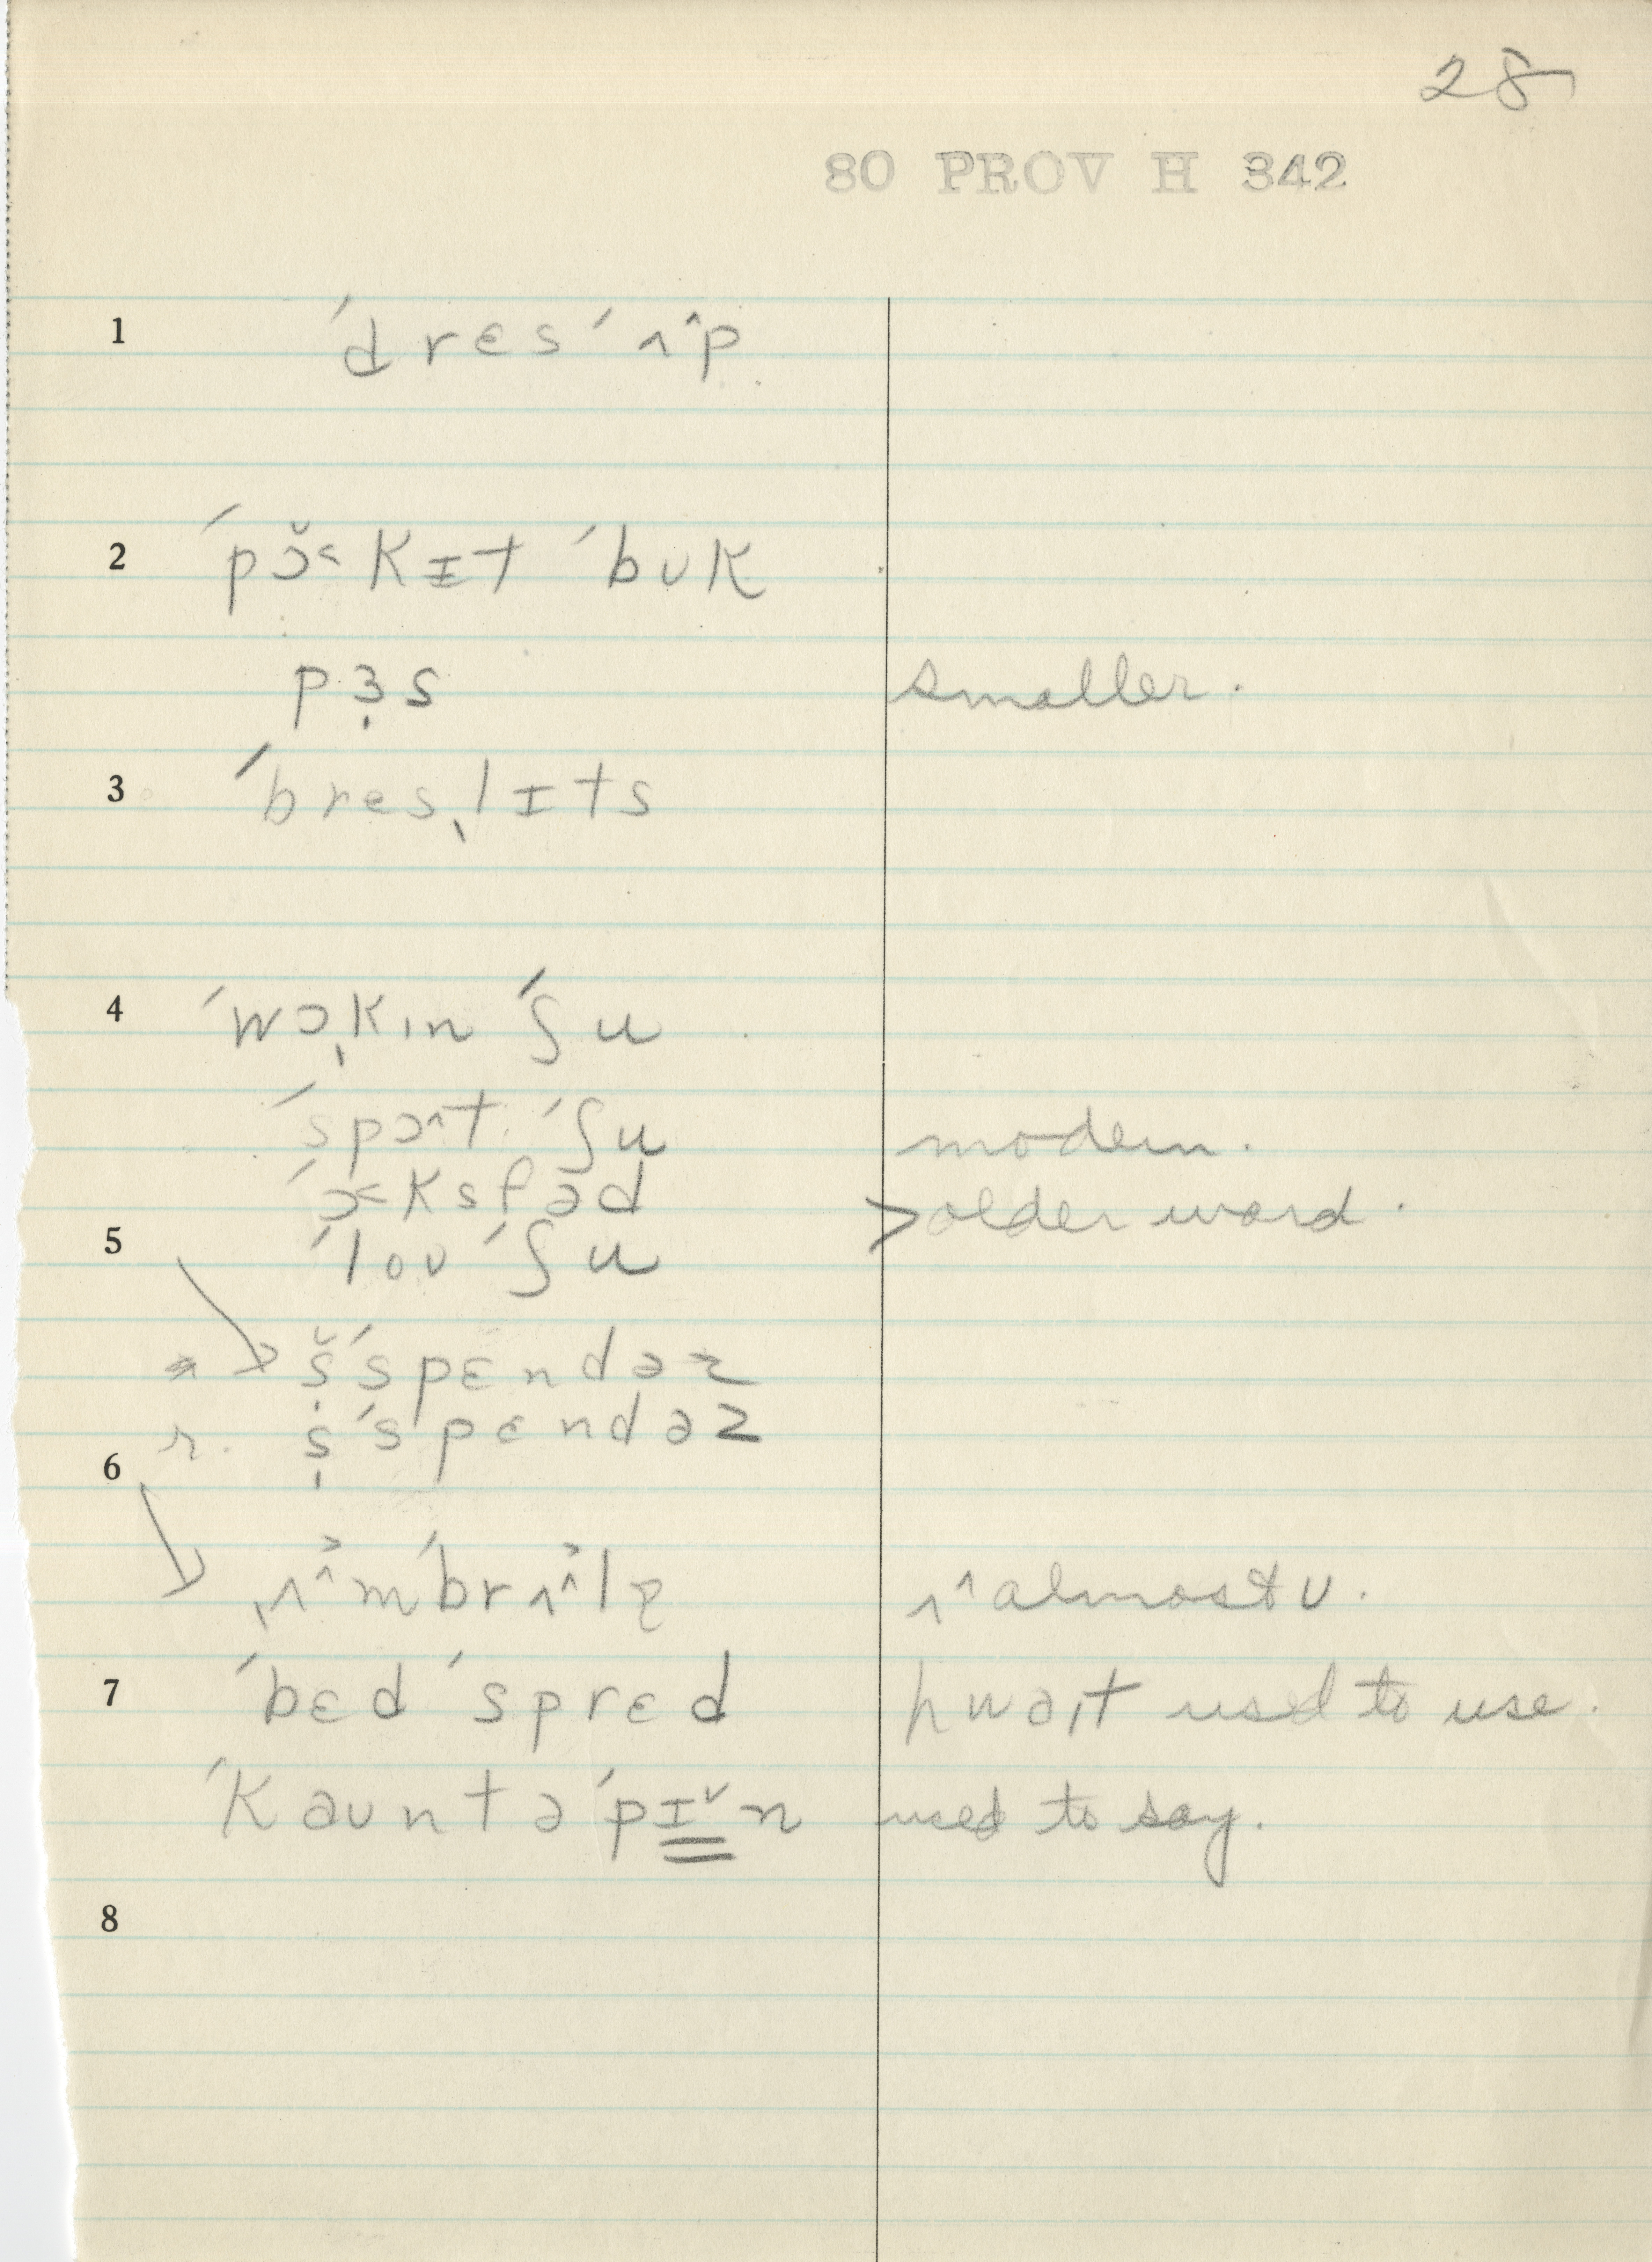 28
80 PROV H 342
1 ˈdrɛsˈʌ^p
2 ˈpɔ̌˂kɪtˈbʊk
pɜ̩s smaller.
3 ˈbresˌlɪts
4 ˈwɔˌkınˈʃu
ˈspɔ^tˈʃu modern.
ˈɔ˂ksfəd > older word.
5 ˈloʊˈʃu
→ š̩ˈspɛndəz
r. s̩ˈspɛndəz
6
→ ˌʌ^˃mˈbrʌ^˃lə ʌ^ almost ʊ.
7 ˈbɛdˈsprɛd hwaıt used to use.
ˈkaʊntəˈpɪ̳ˇn used to say.
8